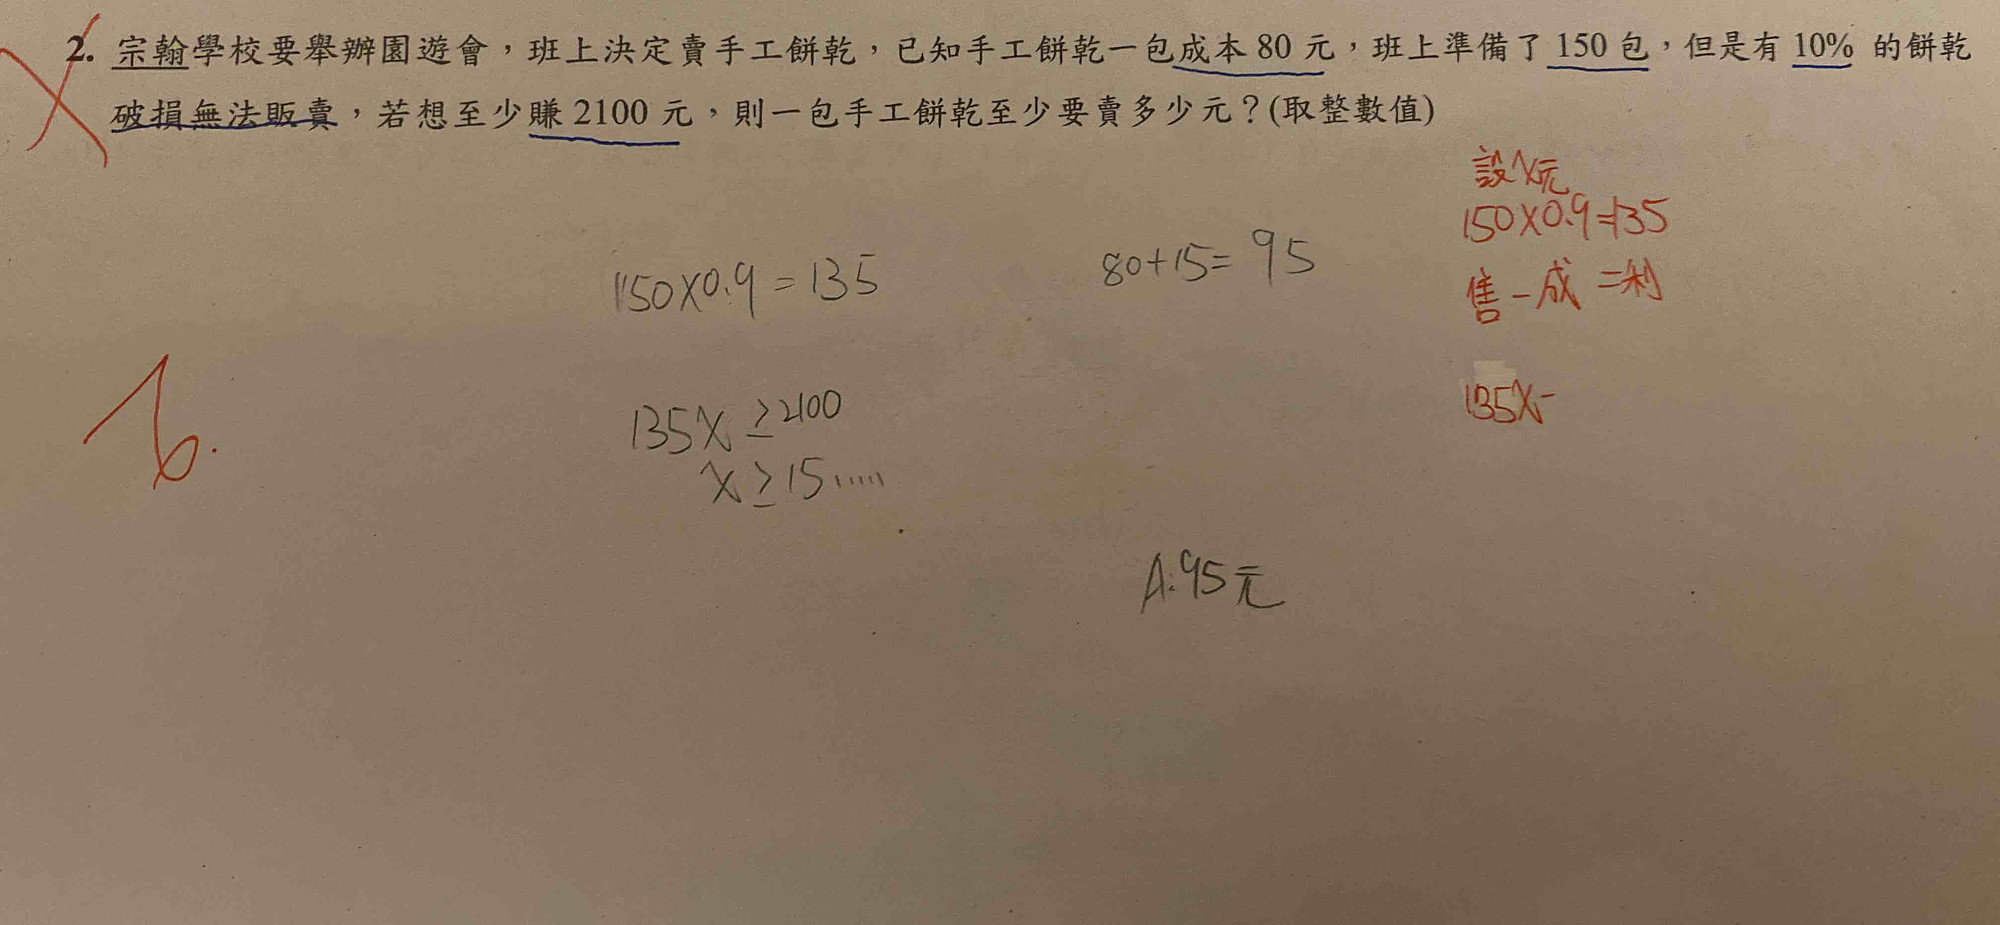 2. 宗翰學校要舉辦園遊會，班上決定賣手工餅乾，已知手工餅乾一包成本 80 元，班上準備了 150 包，但是有 10% 的餅乾
破損無法販賣，若想至少賺 2100 元，則一包手工餅乾至少要賣多少元？(取整數值)
設X元
150X0.9=135
售-成=利
135X-
150X0.9=135
80+15=95
135X≥2100
X≥15.....
A:95元